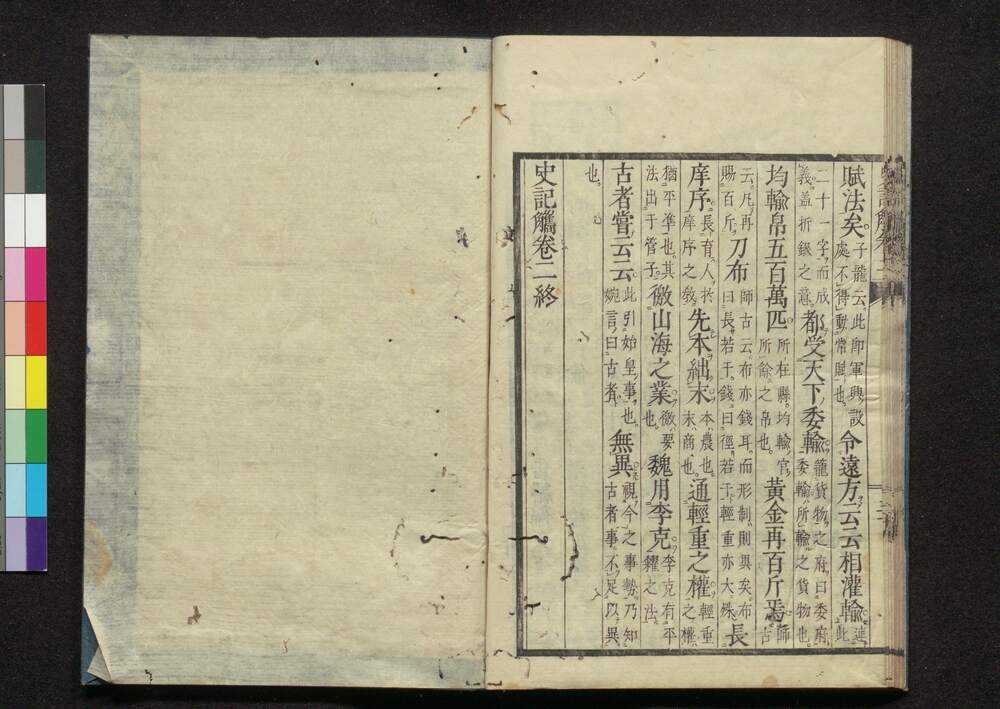 賦法矣。子龍云此即軍興設處不得動常賦也。令遠方云云相灌輸。連此
二十一字而成義蓋折銀之意。都受天下委輸。籠貨物之府曰委府委輸所輸之貨物也
均輸帛五百萬匹所在縣均輸官所餘之帛也。黄金再百斤焉師古
云凡再賜百斤。刀布師古云布亦錢耳而形制則異矣布曰長若干錢曰徑若干輕重亦大殊長
庠序。長育人於庠序之敎先本絀末。本農也。末商也。通輕重之權。輕重之權
猶平準也。其法出于管子。徼山海之業。徼要也魏用李克。李克有平糴之法
古者嘗云云此引始皇事也。婉言曰古者。無異視今之事勢乃知古者事不足以異
也。
史記觿卷二終